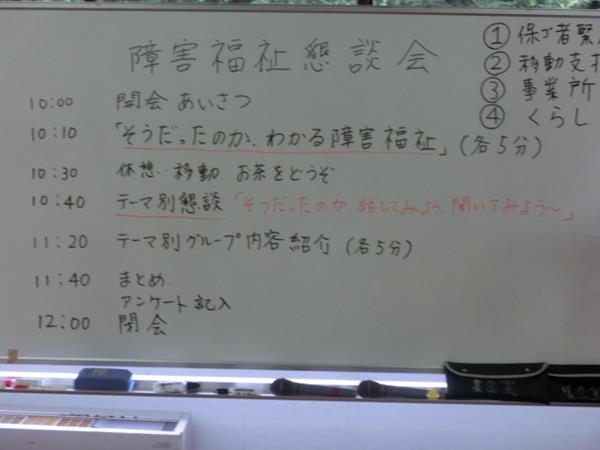 障害福祉懇談会
10:00 開会あいさつ
10:10 「そうだったのか、わかる障害福祉」(各5分)
10:30 休想 移動 お茶をどうぞ
10:40 テーマ別懇談「そうだったのか、話してみよう、聞いてみよう〜」
11:20 テーマ別グループ内容紹介 (各5分)
11:40 まとめ
アンケート記入
12:00 閉会
① 保ゴ者緊
② 移動支
③ 事業所
④ くらし